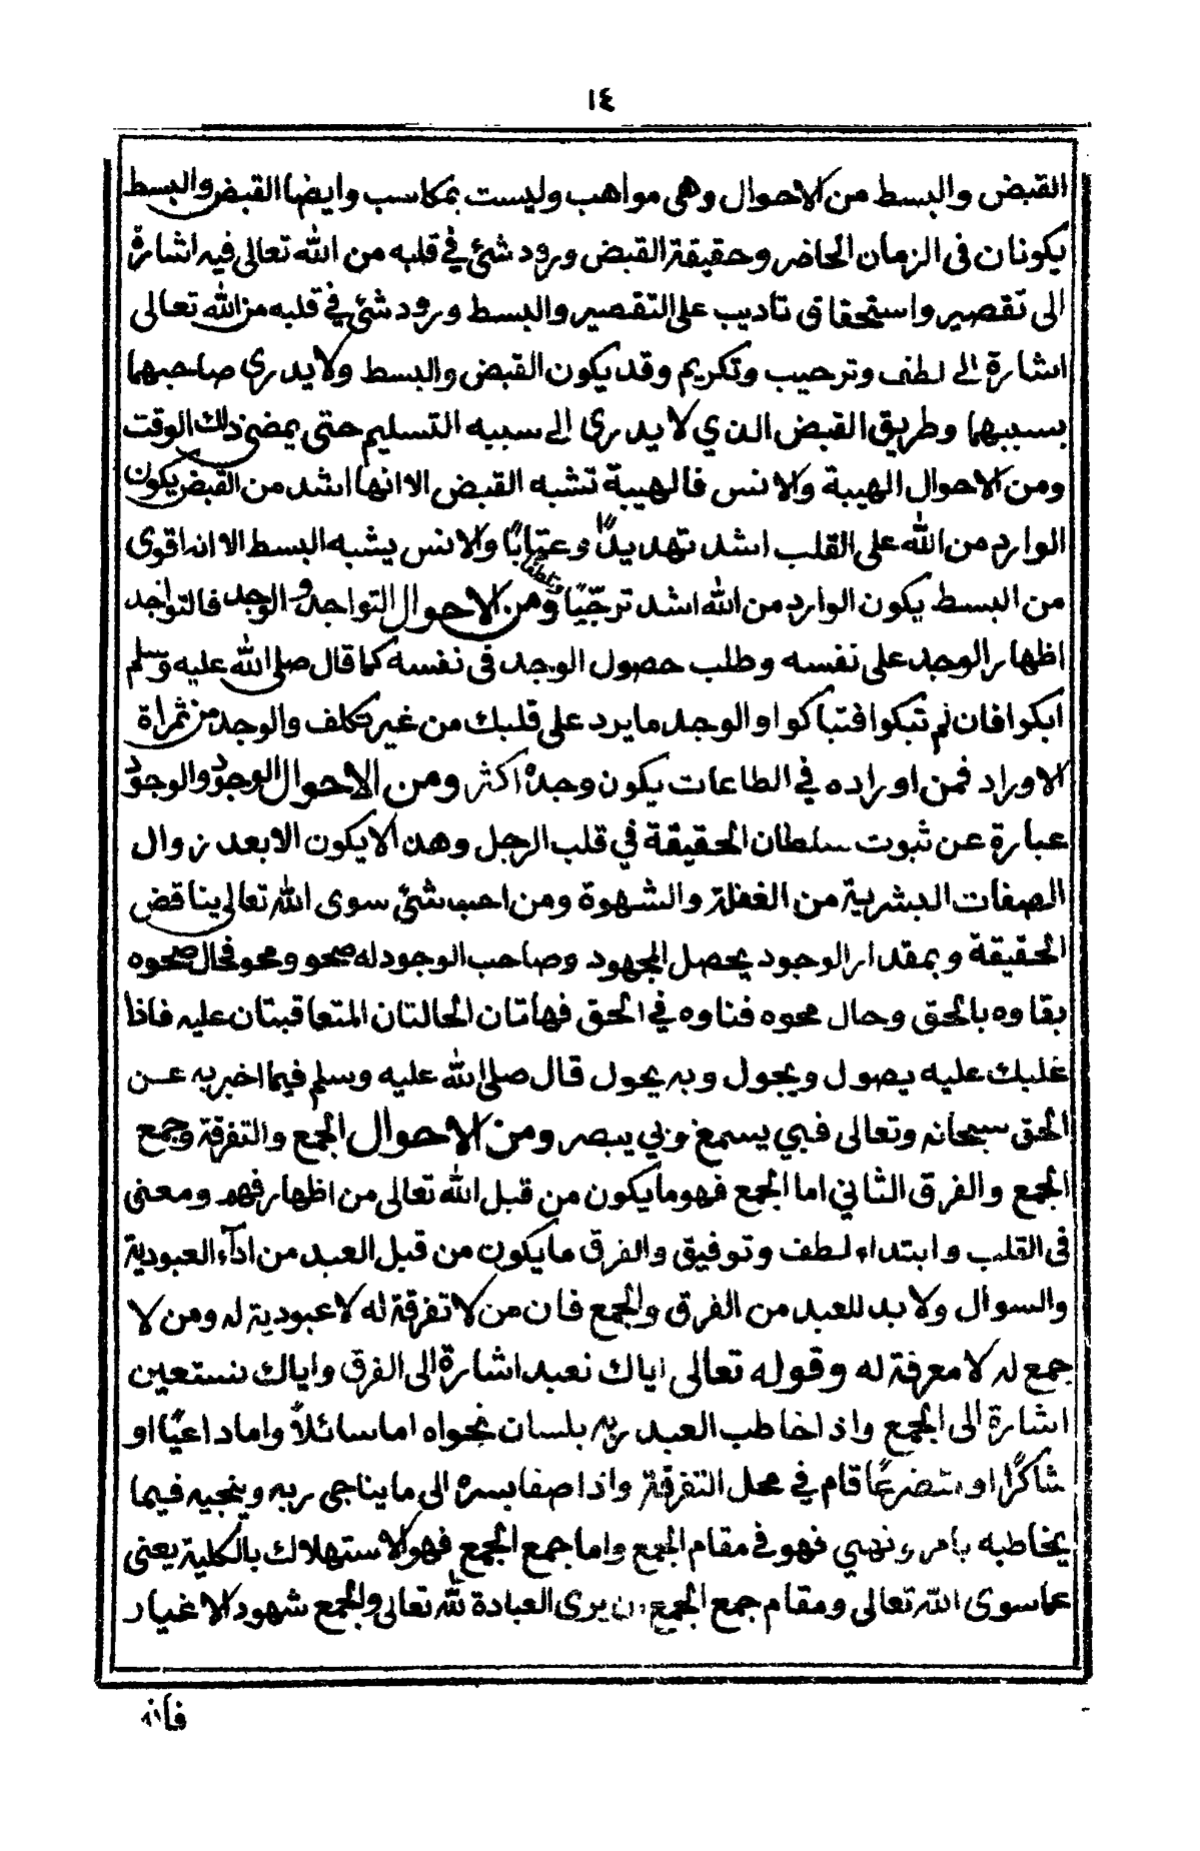 ١٤
القبض والبسط من الاحوال وهى مواهب وليست بمكاسب وايضا القبض والبسط
يكونان فى الزمان الحاضر وحقيقة القبض ورود شئ في قلبه من الله تعالى فيه اشارة
الى تقصير واستحقاق تاديب على التقصير والبسط ورود شئ في قلبه من الله تعالى
اشارة الى لطف وترحيب وتكريم وقد يكون القبض والبسط ولا يدرى صاحبهما
بسببهما وطريق القبض الذي لا يدرى الى سببه التسليم حتى يمضى ذلك الوقت
ومن الاحوال الهيبة والانس فالهيبة تشبه القبض الا انها اشد من القبض يكون
الوارد من الله على القلب اشد تهديدًا وعتابًا والانس يشبه البسط الا انه اقوى
من البسط يكون الوارد من الله اشد ترجّيًا ومن الاحوال التواجد والوجد فالتواجد
اظهار الوجد على نفسه وطلب حصول الوجد فى نفسه كما قال صلى الله عليه وسلم
ابكوا فان لم تبكوا فتباكوا والوجد ما يرد على قلبك من غير تكلف والوجد من ثمراة
الاوراد فمن اوراده في الطاعات يكون وجدهُ اكثر ومن الاحوال الوجود والوجود
عبارة عن ثبوت سلطان الحقيقة في قلب الرجل وهذا لا يكون الا بعد زوال
الصفات البشرية من الغفلة والشهوة ومن احب شئ سوى الله تعالى يناقض
الحقيقة وبمقدار الوجود يحصل المجهود وصاحب الوجود له صحو ومحو فحال صحوه
بقاوه بالحق وحال محوه فناوه في الحق فهاتان الحالتان المتعاقبتان عليه فاذا
غلبك عليه يصول ويجول وبه يحول قال صلى الله عليه وسلم فيما اخبر به عن
الحق سبحانه وتعالى فبي يسمع وبي يبصر ومن الاحوال الجمع والتفرقة وجمع
الجمع والفرق الثاني اما الجمع فهو ما يكون من قبل الله تعالى من اظهار فهم ومعنى
فى القلب وابتداء لطف وتوفيق والفرق ما يكون من قبل العبد من اداء العبودية
والسوال ولا بد للعبد من الفرق والجمع فان من لا تفرقة له لا عبودية له ومن لا
جمع له لا معرفة له وقوله تعالى اياك نعبد اشارة الى الفرق واياك نستعين
اشارة الى الجمع واذ اخاطب العبد ربه بلسان نجواه اما سائلاً واما داعيًا او
شاكرًا او متضرعًا قام في محل التفرقة واذا صفا بسره الى ما يناجى ربه وينجيه فيما
يخاطبه بامر ونهي فهو في مقام الجمع واما جمع الجمع فهو الاستهلاك بالكلية يعنى
عما سوى الله تعالى ومقام جمع الجمع ان يرى العبادة لله تعالى والجمع شهود الاغيار
فانه